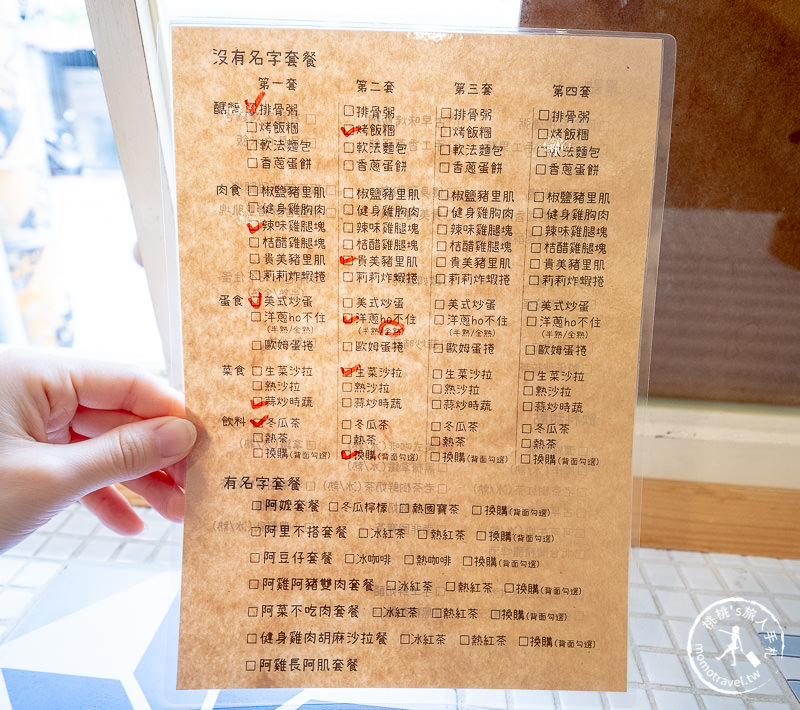 沒有名字套餐
第一套 第二套 第三套 第四套
醣類 ☑排骨粥 ☐排骨粥 ☐排骨粥 ☐排骨粥
☐烤飯糰 ☑烤飯糰 ☐烤飯糰 ☐烤飯糰
☐軟法麵包 ☐軟法麵包 ☐軟法麵包 ☐軟法麵包
☐香蔥蛋餅 ☐香蔥蛋餅 ☐香蔥蛋餅 ☐香蔥蛋餅
肉食 ☐椒鹽豬里肌 ☐椒鹽豬里肌 ☐椒鹽豬里肌 ☐椒鹽豬里肌
☐健身雞胸肉 ☐健身雞胸肉 ☐健身雞胸肉 ☐健身雞胸肉
☑辣味雞腿塊 ☐辣味雞腿塊 ☐辣味雞腿塊 ☐辣味雞腿塊
☐桔醋雞腿塊 ☐桔醋雞腿塊 ☐桔醋雞腿塊 ☐桔醋雞腿塊
☐貴美豬里肌 ☑貴美豬里肌 ☐貴美豬里肌 ☐貴美豬里肌
☐莉莉炸蝦捲 ☐莉莉炸蝦捲 ☐莉莉炸蝦捲 ☐莉莉炸蝦捲
蛋食 ☑美式炒蛋 ☐美式炒蛋 ☐美式炒蛋 ☐美式炒蛋
☐洋蔥ho不住 ☑洋蔥ho不住 ☐洋蔥ho不住 ☐洋蔥ho不住
(半熟/全熟) (半熟/全熟) (半熟/全熟) (半熟/全熟)
☐歐姆蛋捲 ☐歐姆蛋捲 ☐歐姆蛋捲 ☐歐姆蛋捲
菜食 ☐生菜沙拉 ☑生菜沙拉 ☐生菜沙拉 ☐生菜沙拉
☐熱沙拉 ☐熱沙拉 ☐熱沙拉 ☐熱沙拉
☑蒜炒時蔬 ☐蒜炒時蔬 ☐蒜炒時蔬 ☐蒜炒時蔬
飲料 ☑冬瓜茶 ☐冬瓜茶 ☐冬瓜茶 ☐冬瓜茶
☐熱茶 ☐熱茶 ☐熱茶 ☐熱茶
☐換購(背面勾選) ☑換購(背面勾選) ☐換購(背面勾選) ☐換購(背面勾選)
有名字套餐
☐阿嬤套餐 ☐冬瓜檸檬 ☐熱國寶茶 ☐換購(背面勾選)
☐阿里不搭套餐 ☐冰紅茶 ☐熱紅茶 ☐換購(背面勾選)
☐阿豆仔套餐 ☐冰咖啡 ☐熱咖啡 ☐換購(背面勾選)
☐阿雞阿豬雙肉套餐 ☐冰紅茶 ☐熱紅茶 ☐換購(背面勾選)
☐阿菜不吃肉套餐 ☐冰紅茶 ☐熱紅茶 ☐換購(背面勾選)
☐健身雞肉胡麻沙拉餐 ☐冰紅茶 ☐熱紅茶 ☐換購(背面勾選)
☐阿雞長阿肌套餐
桃桃's旅人手札
momotravel.tw